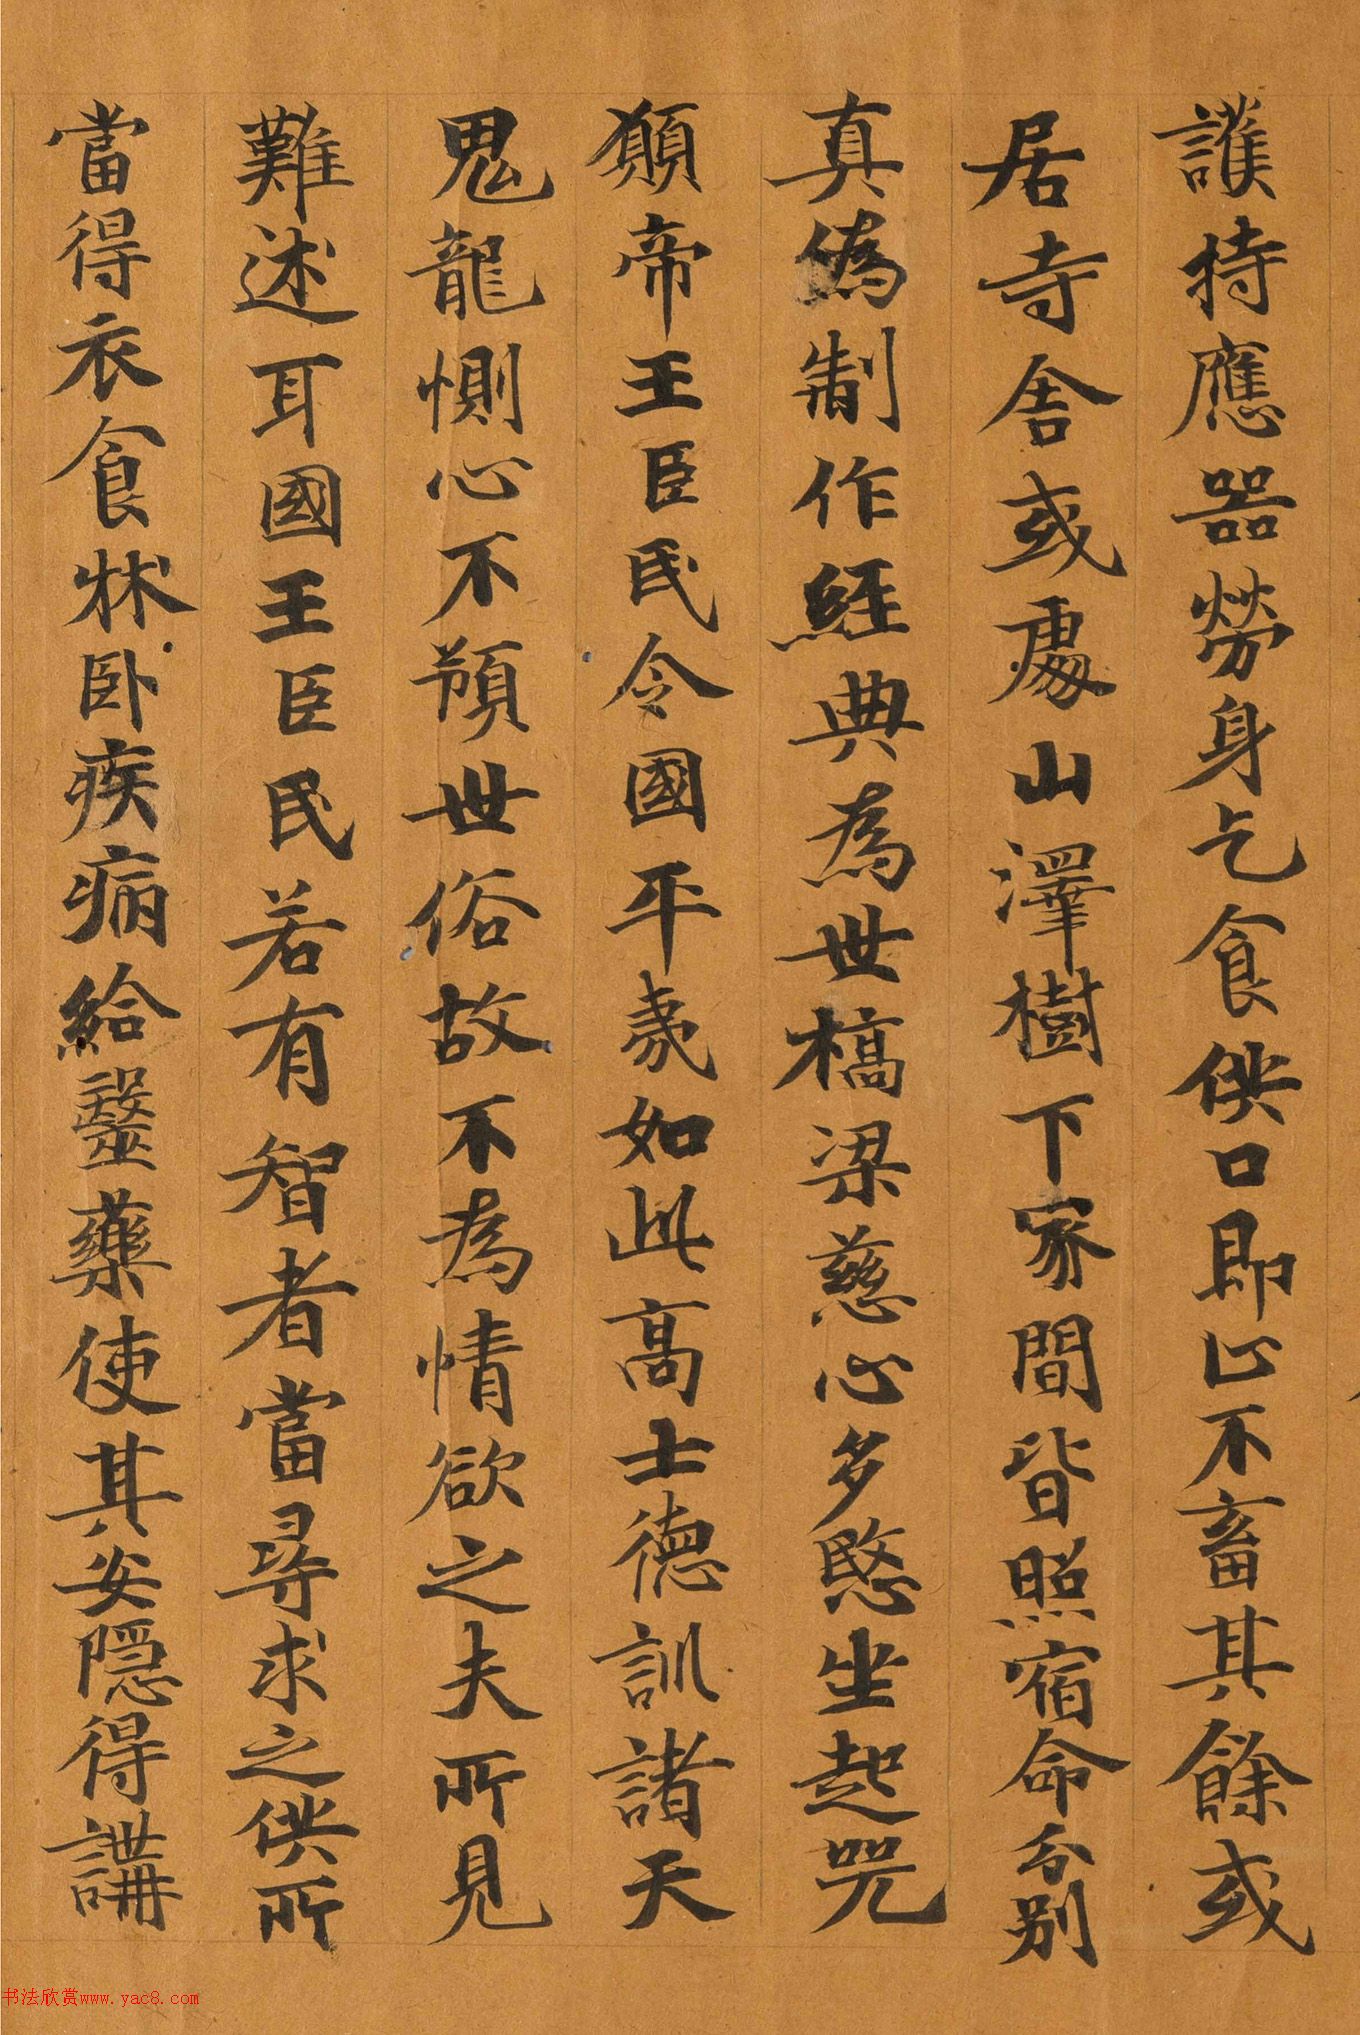 護持應器勞身乞食供口即止不畜其餘或
居寺舍或處山澤樹下冢間皆照宿命分別
真偽制作經典為世橋梁慈心多愍坐起咒
願帝王臣民令國平康如此高士德訓諸天
鬼龍惻心不預世俗故不為情欲之夫所見
難述耳國王臣民若有智者當尋求之供所
當得衣食牀臥疾病給醫藥使其安隱得講
书法欣赏www.yac8.com